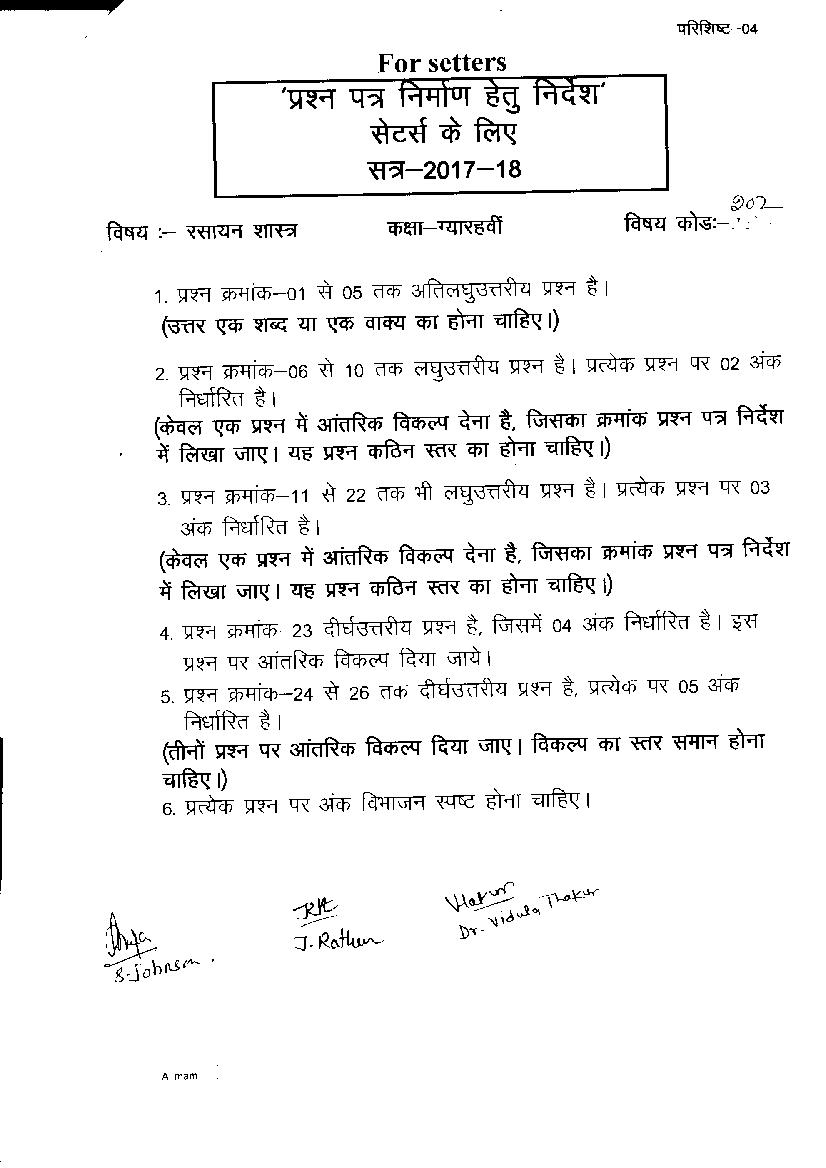 परिशिष्ट -04
For setters
'प्रश्न पत्र निर्माण हेतु निर्देश'
सेटर्स के लिए
सत्र–2017–18
202
विषय :– रसायन शास्त्र कक्षा–ग्यारहवीं विषय कोडः–
1. प्रश्न क्रमांक–01 से 05 तक अतिलघुउत्तरीय प्रश्न है।
(उत्तर एक शब्द या एक वाक्य का होना चाहिए।)
2. प्रश्न क्रमांक–06 से 10 तक लघुउत्तरीय प्रश्न है। प्रत्येक प्रश्न पर 02 अंक
निर्धारित है।
(केवल एक प्रश्न में आंतरिक विकल्प देना है, जिसका क्रमांक प्रश्न पत्र निर्देश
में लिखा जाए। यह प्रश्न कठिन स्तर का होना चाहिए।)
3. प्रश्न क्रमांक–11 से 22 तक भी लघुउत्तरीय प्रश्न है। प्रत्येक प्रश्न पर 03
अंक निर्धारित है।
(केवल एक प्रश्न में आंतरिक विकल्प देना है, जिसका क्रमांक प्रश्न पत्र निर्देश
में लिखा जाए। यह प्रश्न कठिन स्तर का होना चाहिए।)
4. प्रश्न क्रमांक- 23 दीर्घउत्तरीय प्रश्न है, जिसमें 04 अंक निर्धारित है। इस
प्रश्न पर आंतरिक विकल्प दिया जाये।
5. प्रश्न क्रमांक–24 से 26 तक दीर्घउत्तरीय प्रश्न है, प्रत्येक पर 05 अंक
निर्धारित है।
(तीनों प्रश्न पर आंतरिक विकल्प दिया जाए। विकल्प का स्तर समान होना
चाहिए।)
6. प्रत्येक प्रश्न पर अंक विभाजन स्पष्ट होना चाहिए।
S. Johnson.
J. Rather
Dr. Vidula Thakur
A mam